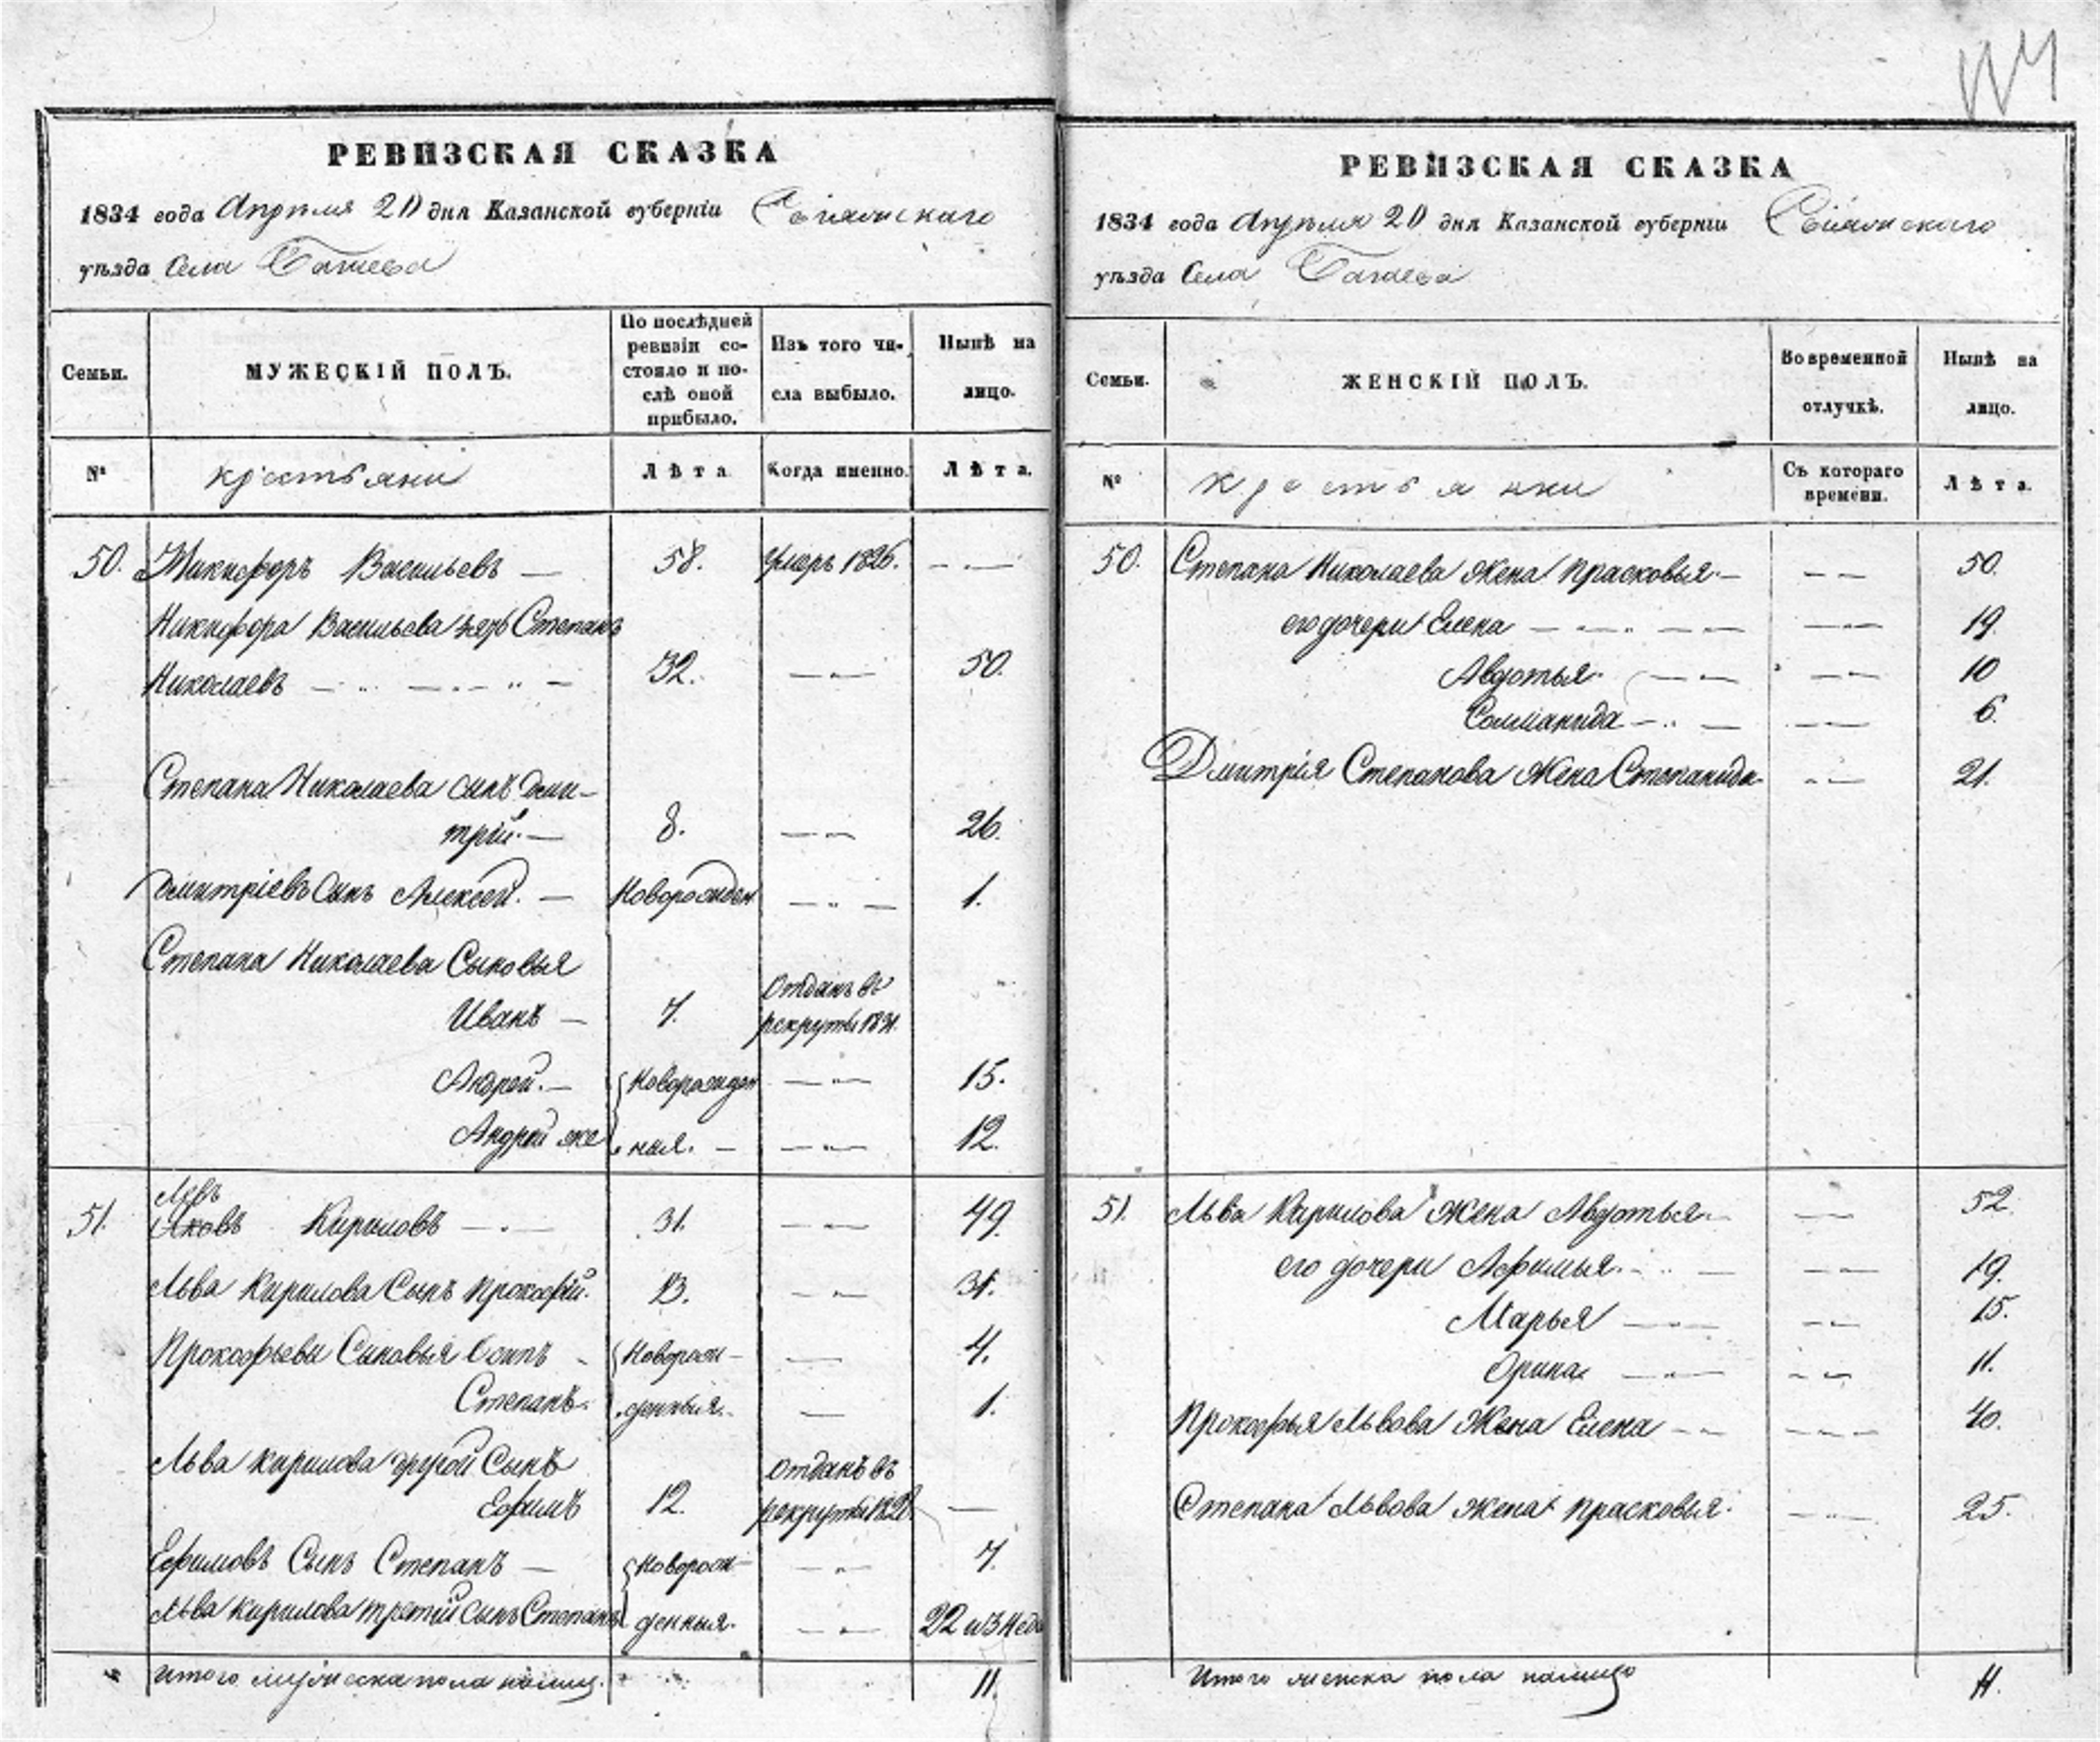 РЕВИЗСКАЯ СКАЗКА
1834 года Апреля 20 дня Казанской губерніи
уѣзда Села
Семьи.
МУЖЕСКІЙ ПОЛЪ.
По послѣдней
ревизіи со-
стояло и по-
слѣ оной
прибыло.
Изъ того чи-
сла выбыло.
Нынѣ на
лицо.
№
крестьяни
Лѣта
Когда именно.
Лѣта.
50. Никифоръ Васильевъ — 58. умеръ 1826. — —
Никифора Васильева зять Степанъ
Николаевъ — 32. — — 50.
Степана Николаева сынъ Дми-
трій. — 8. — — 26.
Дмитріевъ Сынъ Алексей. — Новорожден — — 1.
Степана Николаева Сыновья
Иванъ — 7. Отданъ въ
рекруты 1831.
Андрей. — Новорожден — — 15.
Андрей же ныя. — — — 12.
Левъ
51. Яковъ Кириловъ — 31. — — 49.
Льва Кирилова Сынъ Прокофій. 13. — — 31.
Прокофьевы Сыновья Осипъ Новорож- — 4.
Степанъ. денныя. — 1.
Льва Кирилова другой Сынъ Отданъ въ
Ефимъ 12. рекруты 1828 —
Ефимовъ Сынъ Степанъ — Новорож- — — 7.
Льва Кирилова третій сынъ Степанъ денныя. — — 22 и 3 нед
Итого мужеска пола налицо. 11.
РЕВИЗСКАЯ СКАЗКА
1834 года Апреля 20 дня Казанской губерніи
уѣзда Села
Семьи.
ЖЕНСКІЙ ПОЛЪ.
Во временной
отлучкѣ.
Нынѣ на
лицо.
№
крестьянки
Съ котораго
времени.
Лѣта.
50. Степана Николаева жена Прасковья. — — — 50.
его дочери Елена — — — 19.
Авдотья. — — — 10
Соломанида — — — 6.
Дмитрія Степанова жена Степанида — — 21.
51. Льва Кирилова жена Авдотья — — 52.
его дочери Афимья. — — — 19.
Марья — — — 15.
Орина — — — 11.
Прокофья Львова жена Елена — — — 40.
Степана Львова жена Прасковья. — — 25.
Итого женска пола налицо 11.